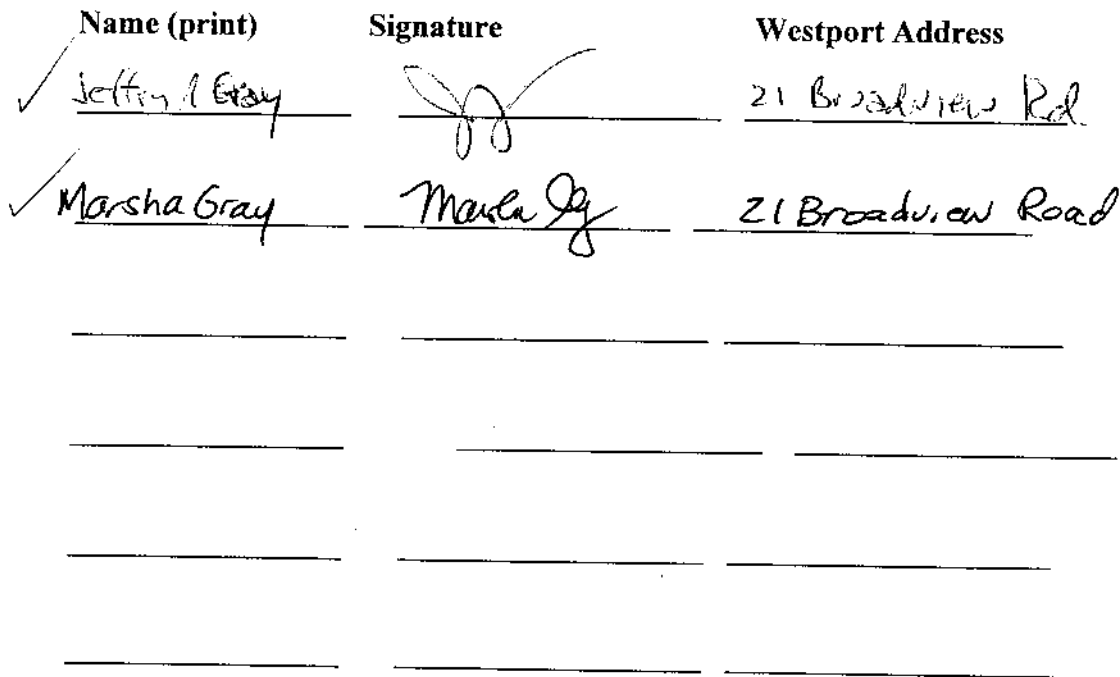 Name (print) Signature Westport Address
Gray 21 Broadview Rd.
Marsha Gray 21 Broadview Road